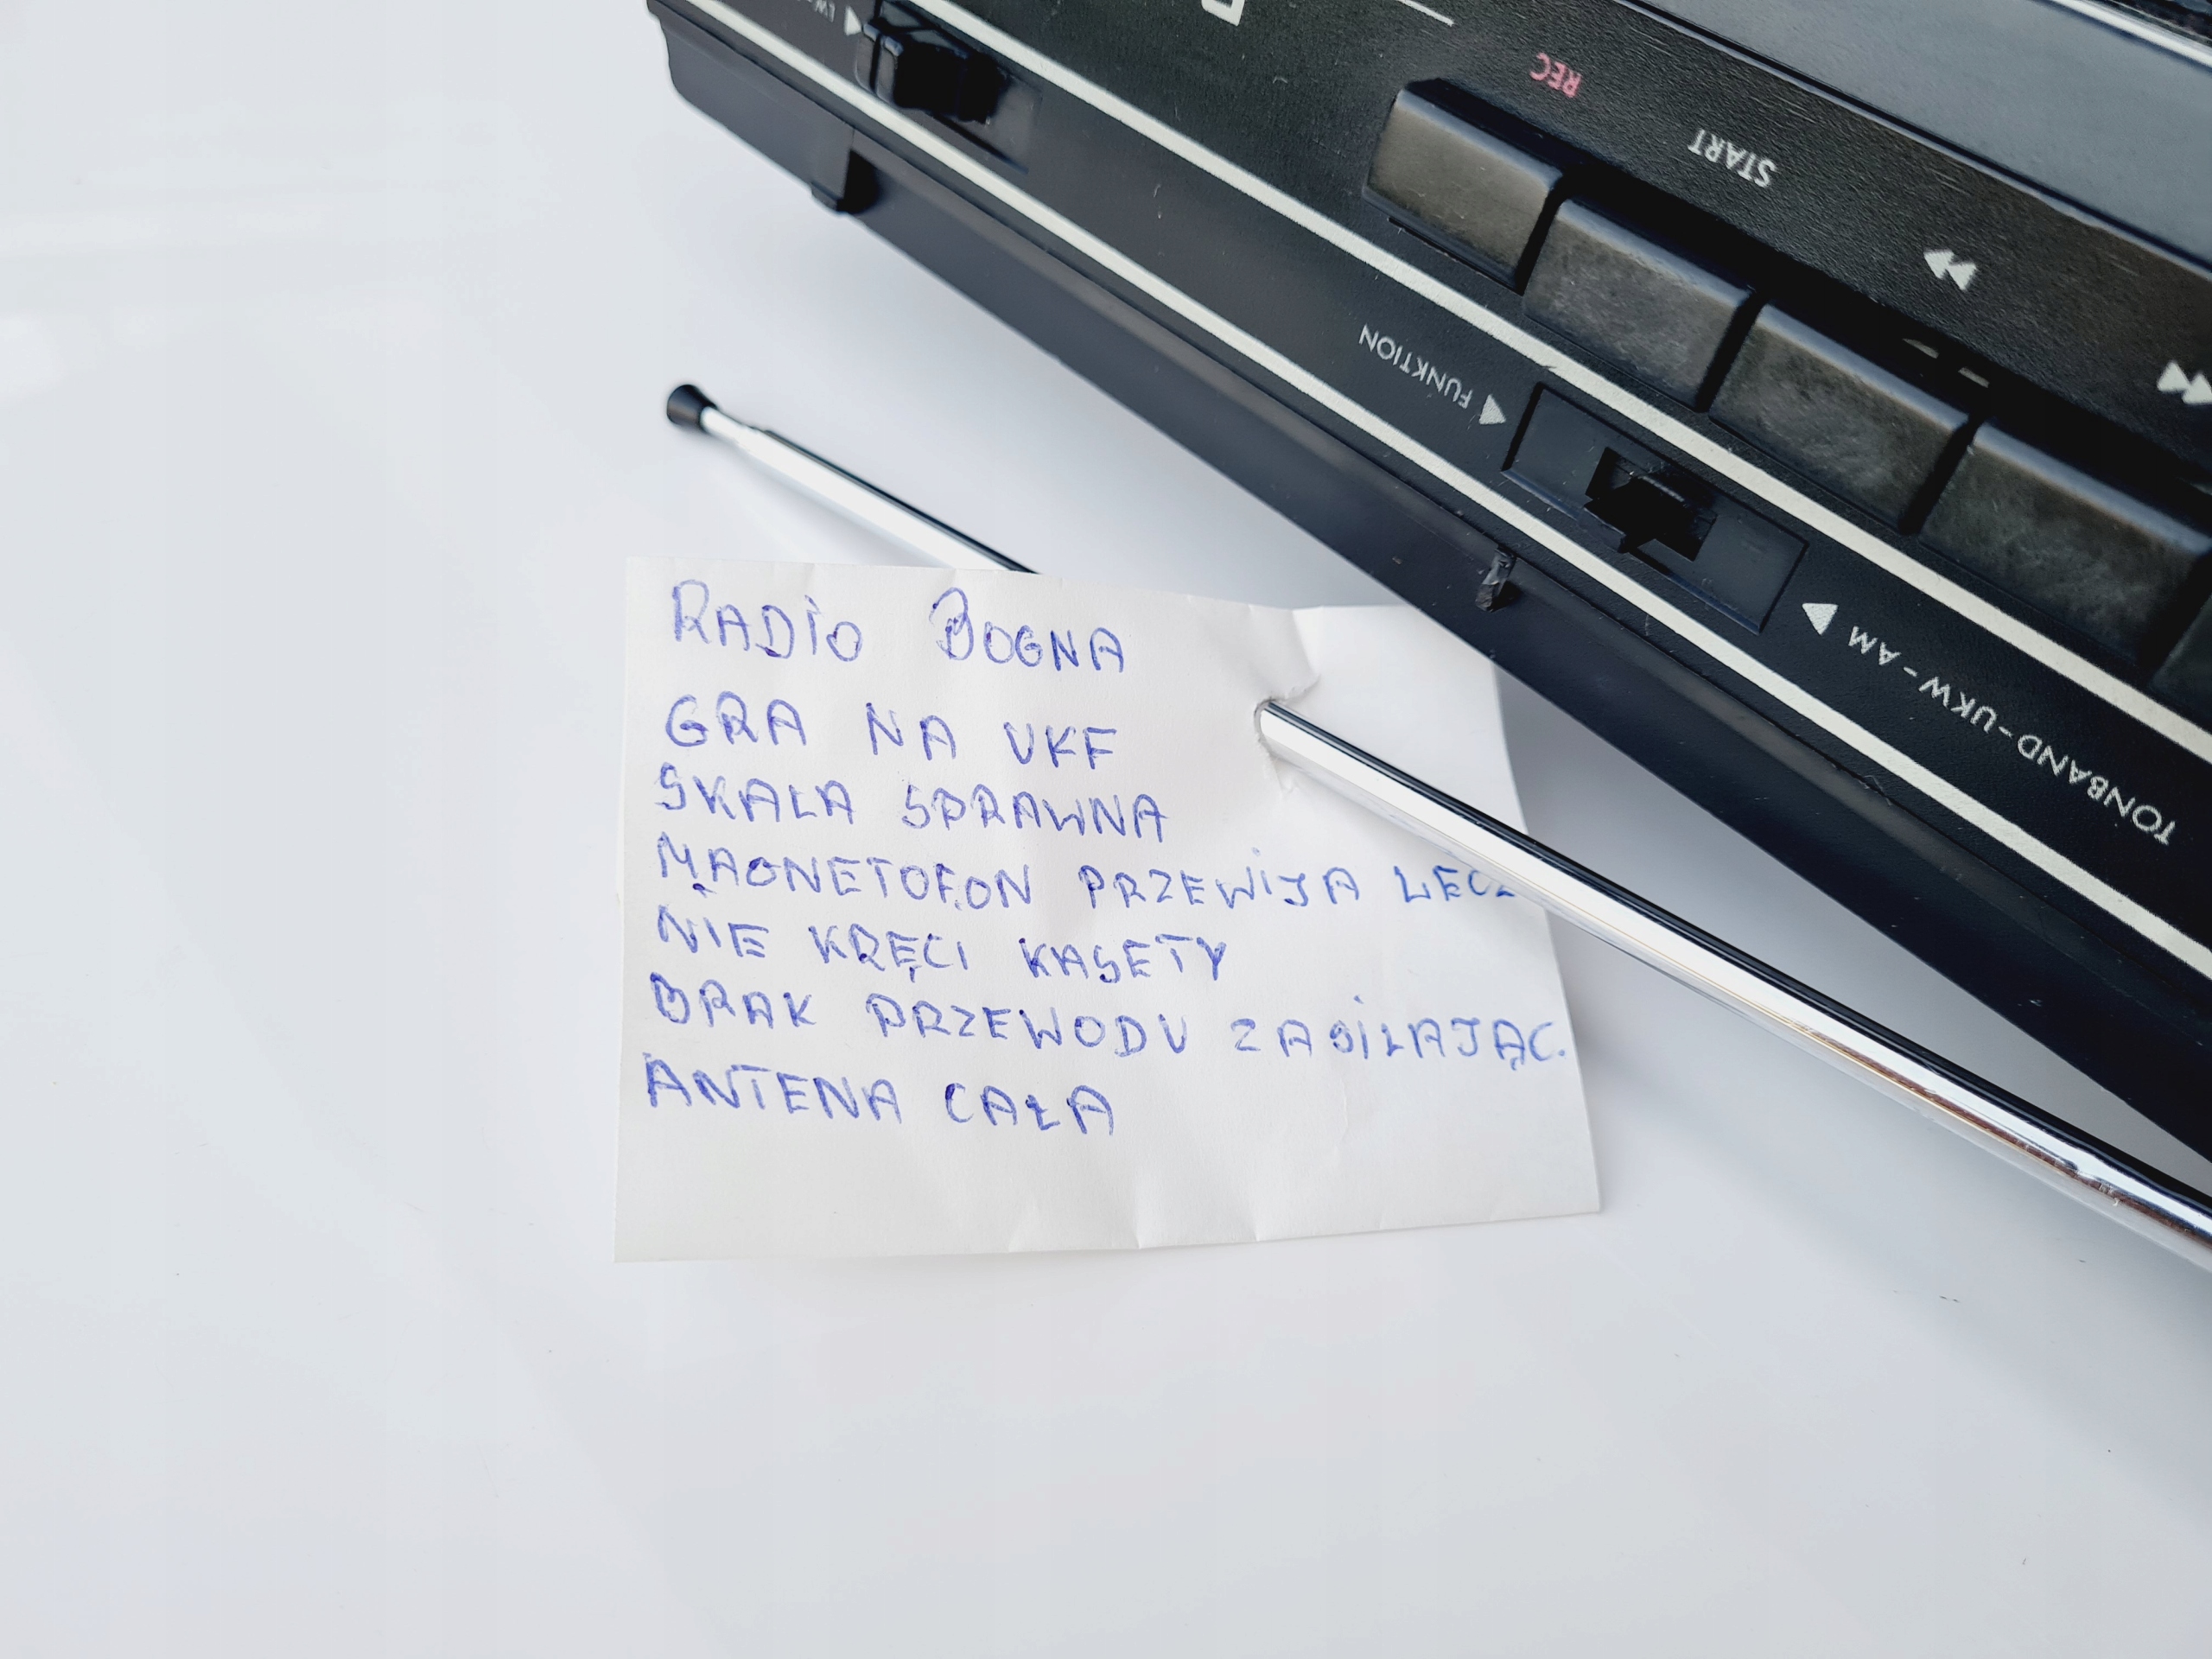 LW
REC
START
FUNKTION
TONBAND-UKW-AM
RADIO BOGNA
GRA NA UKF
SKALA SPRAWNA
MAGNETOFON PRZEWIJA LECZ
NIE KRĘCI KASETY
BRAK PRZEWODU ZASILAJĄC.
ANTENA CAŁA